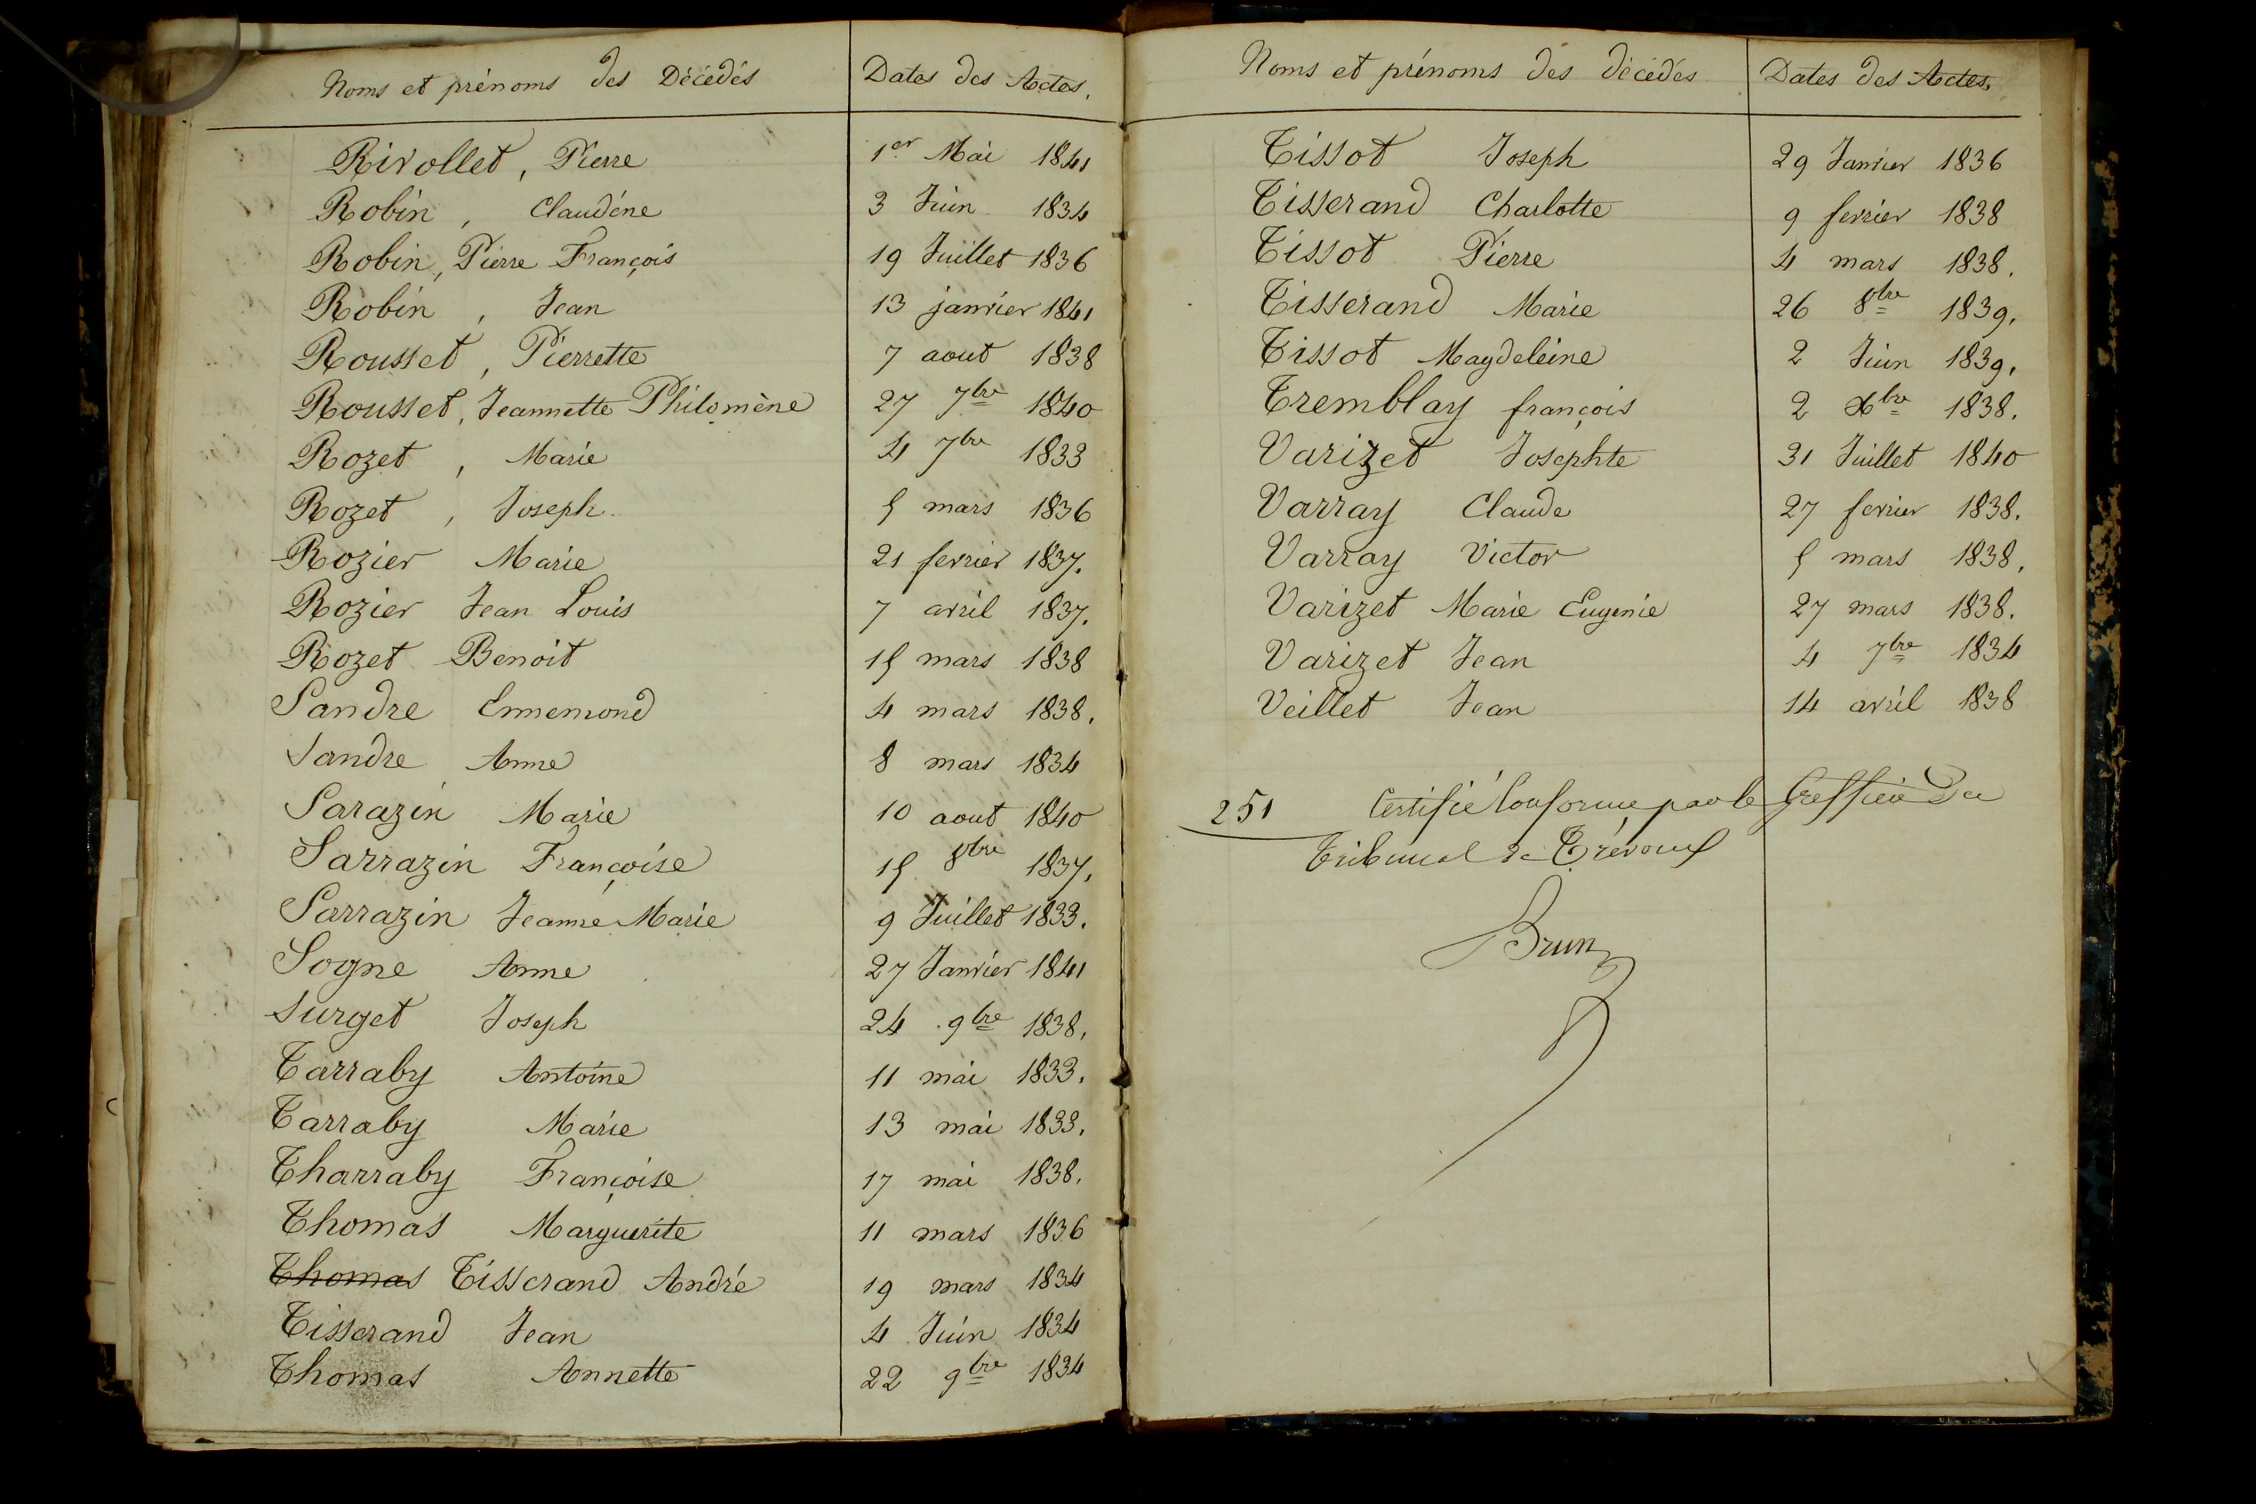 Noms et prénoms des Décédés Dates des Actes.
Rivollet, Pierre 1er Mai 1841
Robin, Claudéne 3 Juin 1834
Robin, Pierre François 19 Juillet 1836
Robin, Jean 13 janvier 1841
Rousset, Pierrette 7 aout 1838
Rousset, Jeannette Philomène 27 7bre 1840
Rozet, Marie 4 7bre 1833
Rozet, Joseph 5 mars 1836
Rozier Marie 21 fevrier 1837.
Rozier Jean Louis 7 avril 1837.
Rozet Benoit 15 mars 1838
Sandre Ennemond 4 mars 1838.
Sandre Anne 8 mars 1834
Sarazin Marie 10 aout 1840
Sarrazin Françoise 15 8bre 1837.
Sarrazin Jeanne Marie 9 Juillet 1833.
Sogne Anne 27 Janvier 1841
Surget Joseph 24 9bre 1838.
Tarraby Antoine 11 mai 1833.
Tarraby Marie 13 mai 1833.
Tharraby Françoise 17 mai 1838.
Thomas Marguerite 11 mars 1836
Thomas Tisserand André 19 mars 1834
Tisserand Jean 4 Juin 1834
Thomas Annette 22 9bre 1834
Noms et prénoms des décédés Dates des Actes.
Tissot Joseph 29 Janvier 1836
Tisserand Charlotte 9 fevrier 1838
Tissot Pierre 4 mars 1838.
Tisserand Marie 26 8bre 1839.
Tissot Magdeleine 2 Juin 1839.
Tremblay françois 2 Xbre 1838.
Varizet Josephte 31 Juillet 1840
Varray Claude 27 fevrier 1838.
Varray Victor 5 mars 1838.
Varizet Marie Eugenie 27 mars 1838.
Varizet Jean 4 7bre 1834
Veillet Jean 14 avril 1838
251 Certifié Conforme par le Greffier du
Tribunal de Trévoux
Brun